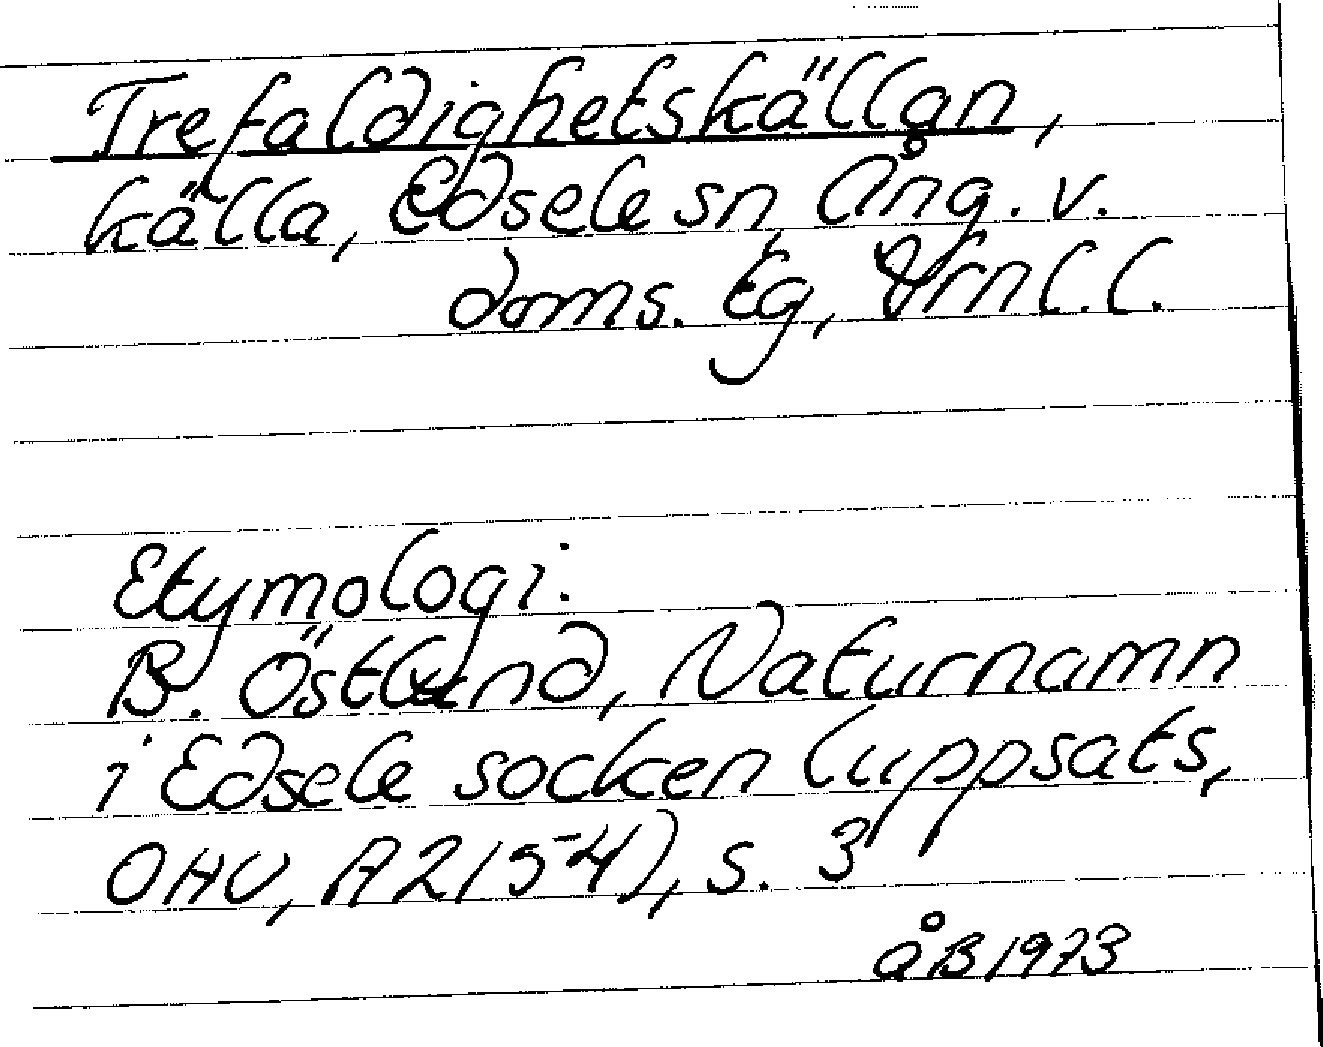 Trefaldighetskällan,
källa, Edsele sn Ång. v.
doms. tg, Vrnl. l.
Etymologi:
B. Östlund, Naturnamn
i Edsele socken (uppsats,
OHU, A2154), s. 3
ÅB 1973